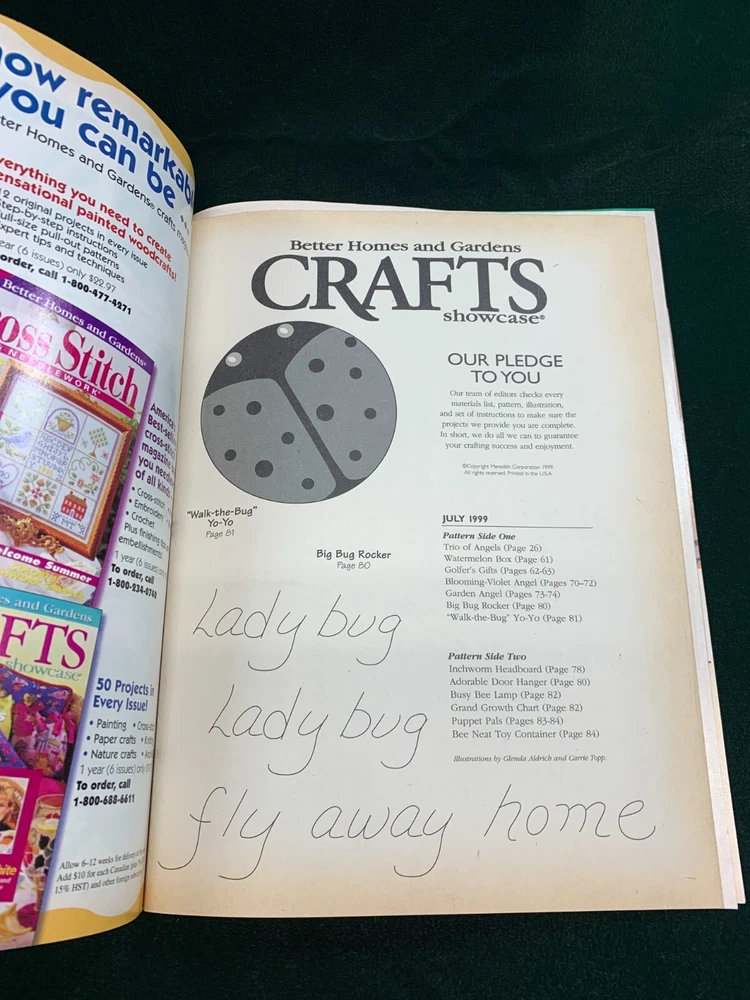 now remarkable
you can be ...
Better Homes and Gardens® crafts
Everything you need to create
sensational painted woodcrafts!
12 original projects in every issue
Step-by-step instructions
Full-size pull-out patterns
Expert tips and techniques
year (6 issues) only $22.97
order, call 1-800-477-4271
Better Homes and Gardens®
Cross Stitch
NEEDLEWORK
Welcome Summer
America
Best-sel
cross-stit
magazine
you need
of all kind
• Cross-stitch
• Embroidery
• Crochet
Plus finishing
embellishments
1 year (6 issues)
To order, call
1-800-934-0740
es and Gardens
CRAFTS
showcase
50 Projects in
Every Issue!
• Painting • Cross-
• Paper crafts
• Nature crafts
1 year (6 issues) only
To order, call
1-800-688-6611
Allow 6-12 weeks for delivery
Add $10 for each Canadian
15% HST) and other foreign
Better Homes and Gardens
CRAFTS
showcase®
OUR PLEDGE
TO YOU
Our team of editors checks every
materials list, pattern, illustration,
and set of instructions to make sure the
projects we provide you are complete.
In short, we do all we can to guarantee
your crafting success and enjoyment.
©Copyright Meredith Corporation 1999
All rights reserved. Printed in the U.S.A.
"Walk-the-Bug"
Yo-Yo
Page 81
Big Bug Rocker
Page 80
JULY 1999
Pattern Side One
Trio of Angels (Page 26)
Watermelon Box (Page 61)
Golfer's Gifts (Pages 62-63)
Blooming-Violet Angel (Pages 70-72)
Garden Angel (Pages 73-74)
Big Bug Rocker (Page 80)
"Walk-the-Bug" Yo-Yo (Page 81)
Pattern Side Two
Inchworm Headboard (Page 78)
Adorable Door Hanger (Page 80)
Busy Bee Lamp (Page 82)
Grand Growth Chart (Page 82)
Puppet Pals (Pages 83-84)
Bee Neat Toy Container (Page 84)
Illustrations by Glenda Aldrich and Carrie Topp.
Lady bug
Lady bug
fly away home